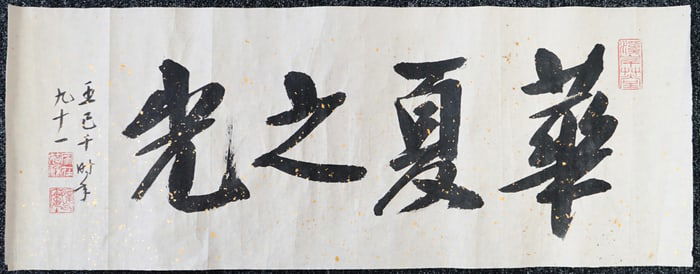 華夏之光
王己千时年
九十一